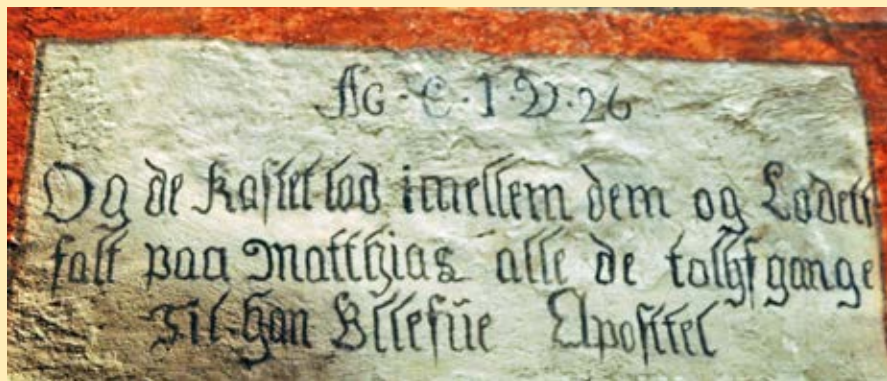 AG · C · 1 · V · 26
Og de Kastet lod imellem dem og Lodett
falt paa Matthias alle de tolhf gange
Til han bllefüe Apostel